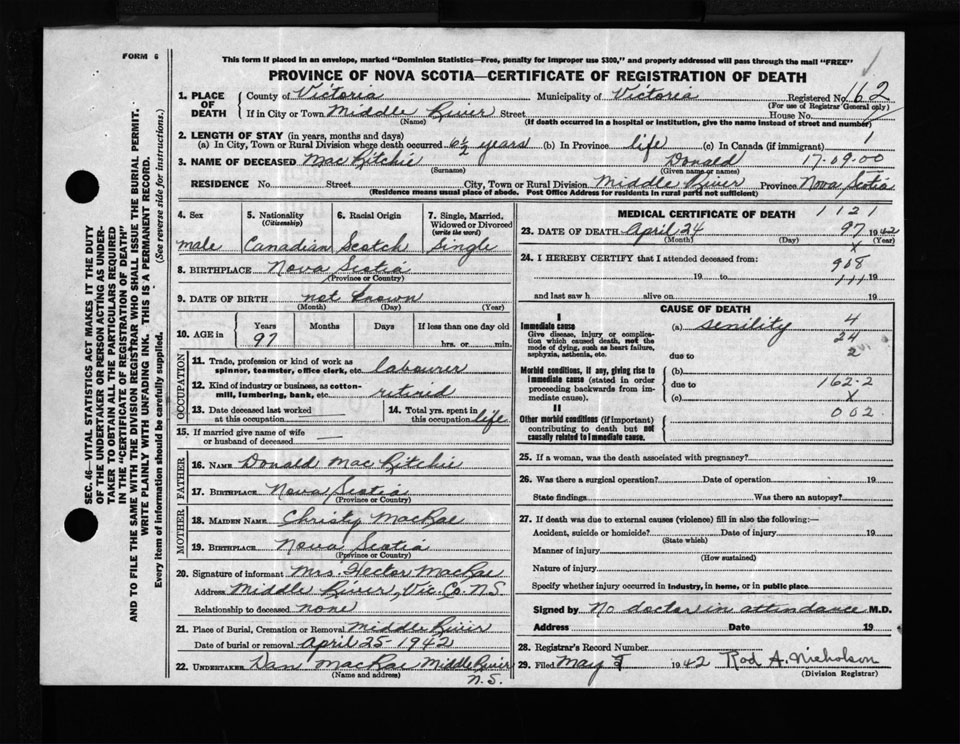 FORM 6
This form if placed in an envelope, marked "Dominion Statistics—Free, penalty for improper use $300," and properly addressed will pass through the mail "FREE"
PROVINCE OF NOVA SCOTIA—CERTIFICATE OF REGISTRATION OF DEATH
1. PLACE OF DEATH { County of Victoria Municipality of Victoria Registered No. 62
(For use of Registrar General only)
If in City or Town Middle River Street House No.
(Name) (If death occurred in a hospital or institution, give the name instead of street and number)
2. LENGTH OF STAY (in years, months and days)
(a) In City, Town or Rural Division where death occurred 6½ years (b) In Province life (c) In Canada (if immigrant) 1
3. NAME OF DECEASED MacRitchie Donald 17.09.00
(Surname) (Given name or names)
RESIDENCE No. Street City, Town or Rural Division Middle River Province Nova Scotia
(Residence means usual place of abode. Post Office Address for residents in rural parts not sufficient)
4. Sex
male
5. Nationality (Citizenship)
Canadian
6. Racial Origin
Scotch
7. Single, Married, Widowed or Divorced (write the word)
Single
8. BIRTHPLACE Nova Scotia
(Province or Country)
9. DATE OF BIRTH not known
(Month) (Day) (Year)
10. AGE in { Years Months Days If less than one day old
97 hrs. or min.
OCCUPATION
11. Trade, profession or kind of work as spinner, teamster, office clerk, etc. labourer
12. Kind of industry or business, as cotton-mill, lumbering, bank, etc. retired
13. Date deceased last worked at this occupation —
14. Total yrs. spent in this occupation life
15. If married give name of wife or husband of deceased —
FATHER
16. NAME Donald MacRitchie
17. BIRTHPLACE Nova Scotia
(Province or Country)
MOTHER
18. MAIDEN NAME Christy MacRae
19. BIRTHPLACE Nova Scotia
(Province or Country)
20. Signature of informant Mrs. Hector MacRae
Address Middle River, Vic. Co. N.S.
Relationship to deceased none
21. Place of Burial, Cremation or Removal Middle River
Date of burial or removal April 25-1942
22. UNDERTAKER Dan MacRae Middle River
(Name and address) N.S.
MEDICAL CERTIFICATE OF DEATH 1121
23. DATE OF DEATH April 24 97 1942
(Month) (Day) (Year)
x
24. I HEREBY CERTIFY that I attended deceased from: 908
19 to 111 19
and last saw h alive on 19
CAUSE OF DEATH
I
Immediate cause
Give disease, injury or complication which caused death, not the mode of dying, such as heart failure, asphyxia, asthenia, etc.
(a) senility 4
24
due to 2
Morbid conditions, if any, giving rise to immediate cause (stated in order proceeding backwards from immediate cause).
(b)
due to 162-2
(c) x
II
Other morbid conditions (if important) contributing to death but not causally related to immediate cause.
002.
25. If a woman, was the death associated with pregnancy?
26. Was there a surgical operation? Date of operation 19
State findings Was there an autopsy?
27. If death was due to external causes (violence) fill in also the following:—
Accident, suicide or homicide? Date of injury 19
(State which)
Manner of injury
(How sustained)
Nature of injury
Specify whether injury occurred in industry, in home, or in public place
Signed by No doctor in attendance M.D.
Address Date 19
28. Registrar's Record Number
29. Filed May 1942 Rod A. Nicholson
(Division Registrar)
SEC. 46—VITAL STATISTICS ACT MAKES IT THE DUTY
OF THE UNDERTAKER OR PERSON ACTING AS UNDER-
TAKER TO OBTAIN ALL THE PARTICULARS REQUIRED
IN THE "CERTIFICATE OF REGISTRATION OF DEATH"
AND TO FILE THE SAME WITH THE DIVISION REGISTRAR WHO SHALL ISSUE THE BURIAL PERMIT.
WRITE PLAINLY WITH UNFADING INK. THIS IS A PERMANENT RECORD.
Every item of information should be carefully supplied. (See reverse side for instructions.)